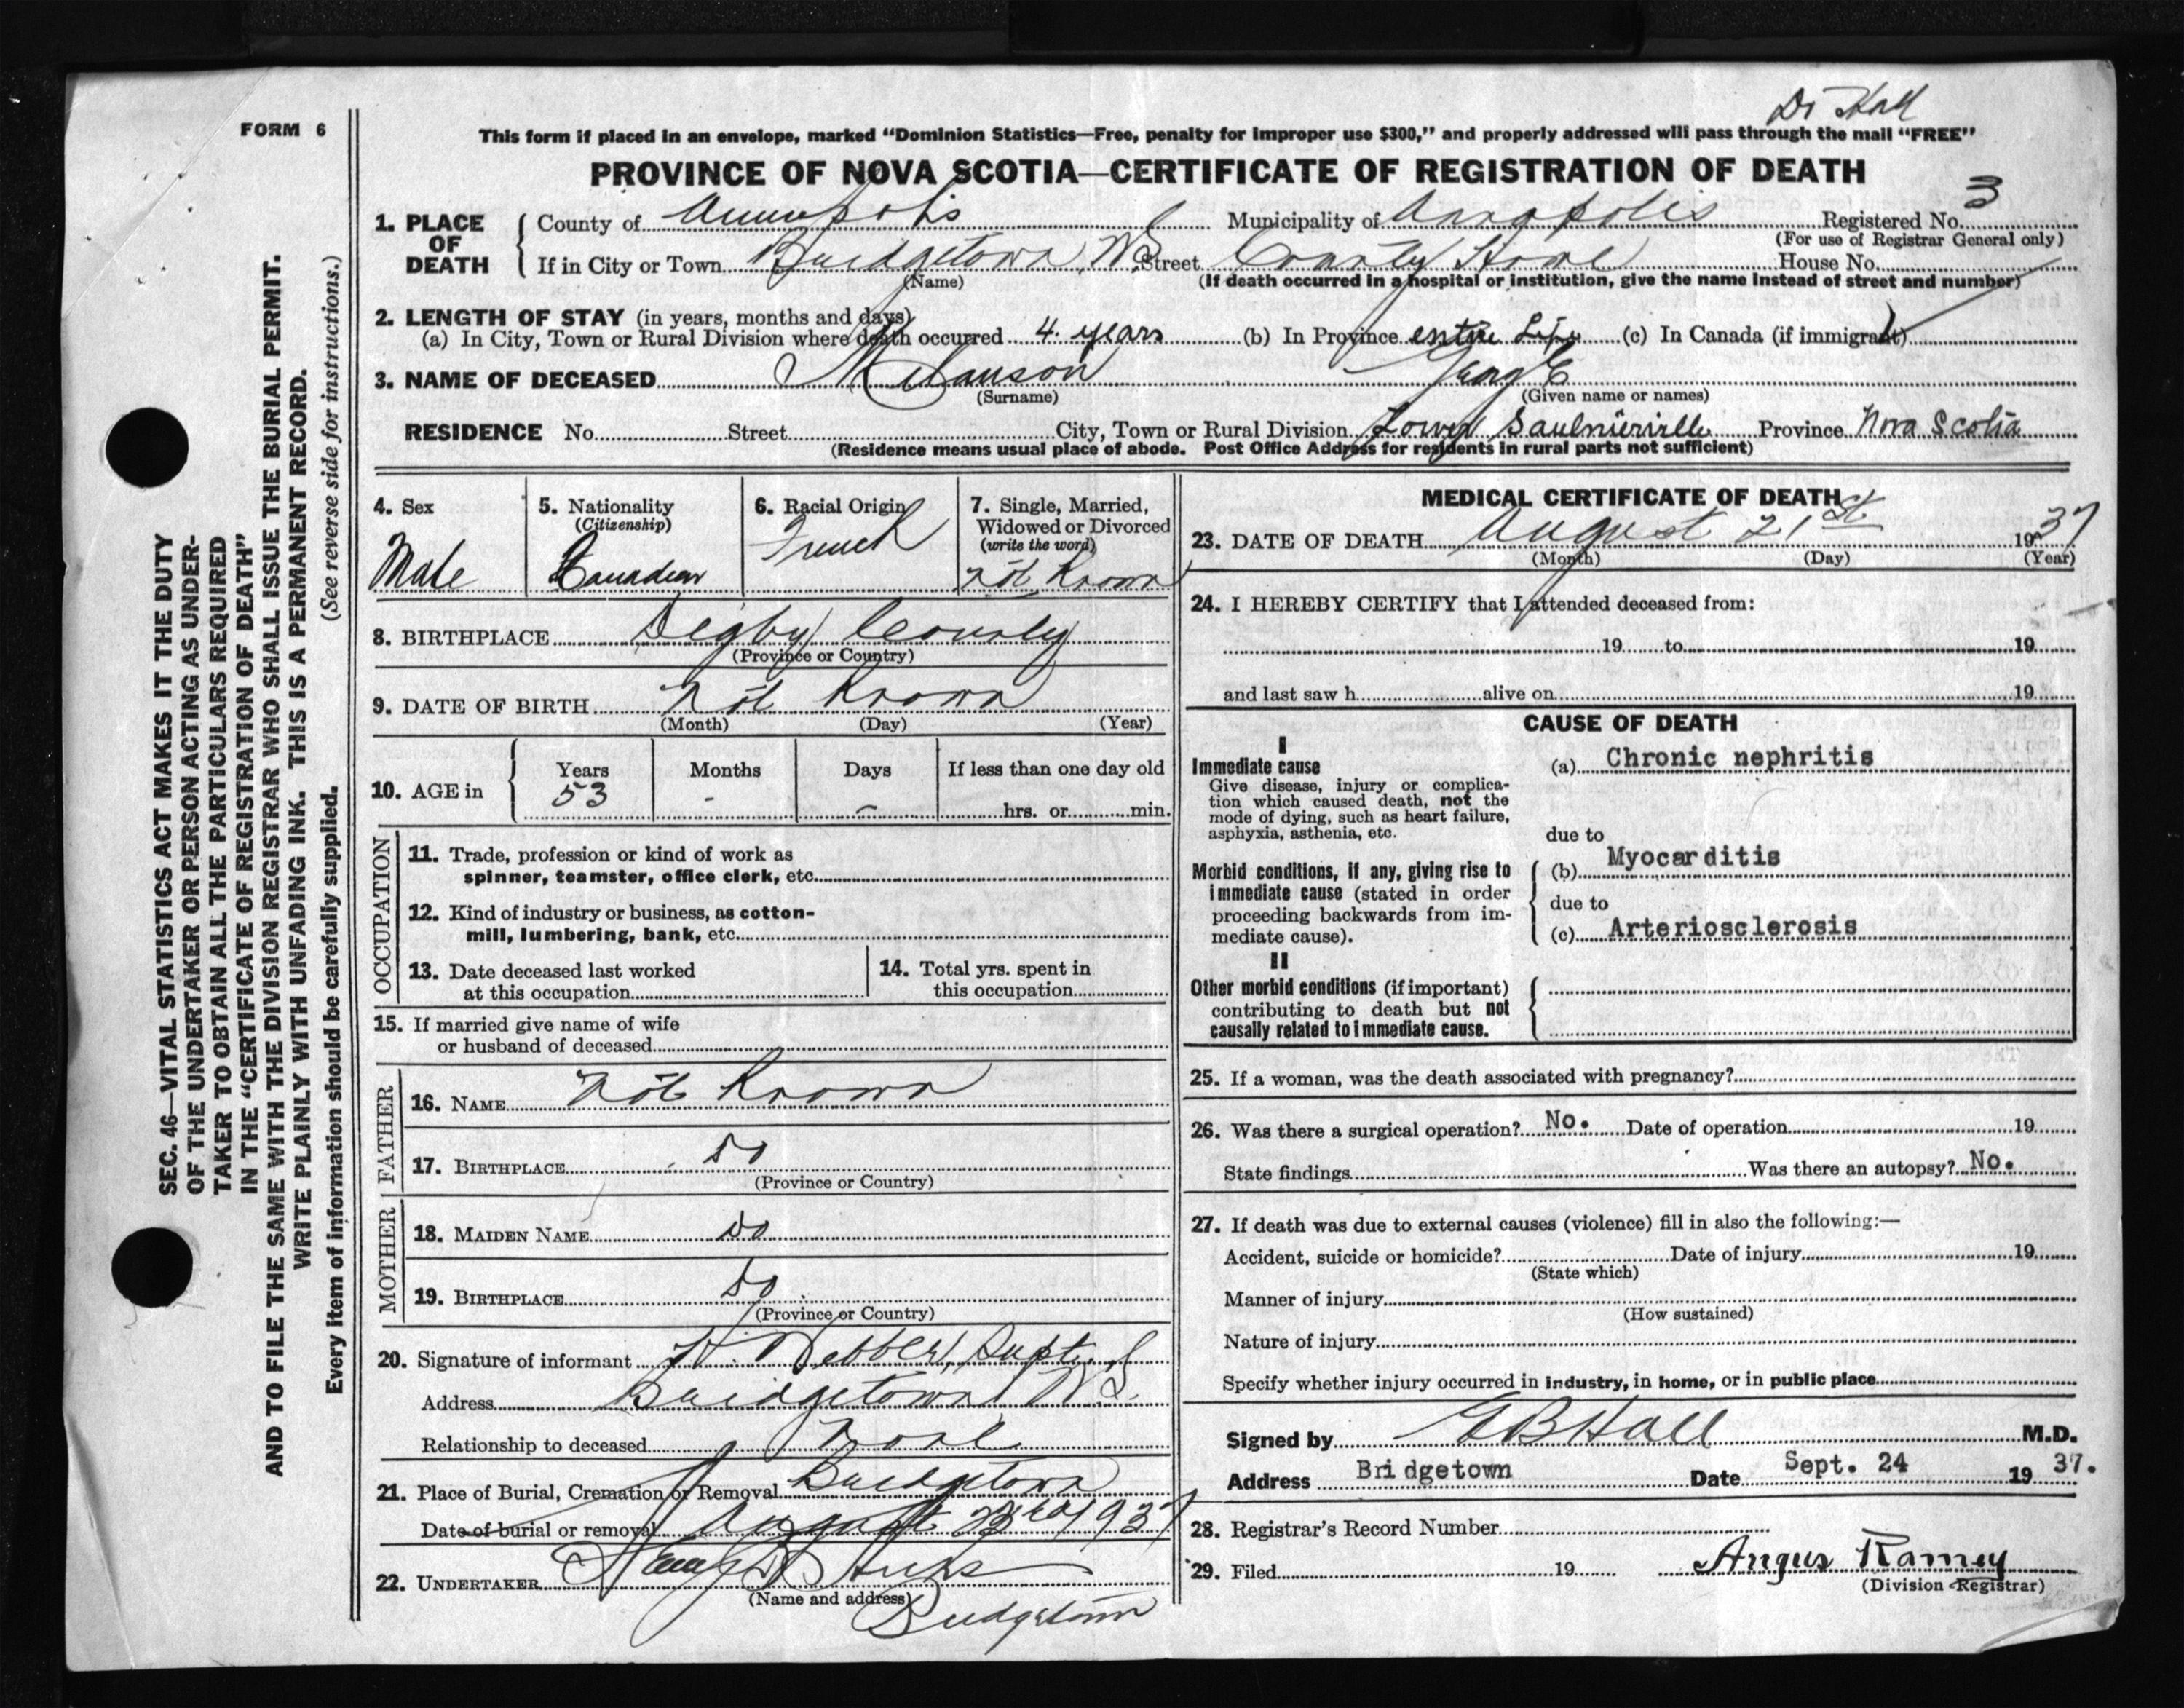 Dr Hall
FORM 6
This form if placed in an envelope, marked “Dominion Statistics—Free, penalty for improper use $300,” and properly addressed will pass through the mail “FREE”
PROVINCE OF NOVA SCOTIA—CERTIFICATE OF REGISTRATION OF DEATH
1. PLACE OF DEATH County of Annapolis Municipality of Annapolis Registered No. 3
(For use of Registrar General only)
If in City or Town Bridgetown, N.S. Street County Home House No.
(Name) (If death occurred in a hospital or institution, give the name instead of street and number)
2. LENGTH OF STAY (in years, months and days)
(a) In City, Town or Rural Division where death occurred 4 years (b) In Province entire Life (c) In Canada (if immigrant)
3. NAME OF DECEASED Melanson
(Surname) (Given name or names)
RESIDENCE No. Street City, Town or Rural Division Lower Saulnierville Province Nova Scotia
(Residence means usual place of abode. Post Office Address for residents in rural parts not sufficient)
4. Sex Male
5. Nationality (Citizenship) Canadian
6. Racial Origin French
7. Single, Married, Widowed or Divorced (write the word) not Known
8. BIRTHPLACE Digby County
(Province or Country)
9. DATE OF BIRTH Not Known
(Month) (Day) (Year)
10. AGE in Years 53 Months - Days - If less than one day old hrs. or min.
OCCUPATION
11. Trade, profession or kind of work as
spinner, teamster, office clerk, etc.
12. Kind of industry or business, as cotton-
mill, lumbering, bank, etc.
13. Date deceased last worked
at this occupation
14. Total yrs. spent in
this occupation
15. If married give name of wife
or husband of deceased
FATHER
16. NAME Not Known
17. BIRTHPLACE Do
(Province or Country)
MOTHER
18. MAIDEN NAME Do
19. BIRTHPLACE Do
(Province or Country)
20. Signature of informant H. Webber, Supt.
Address Bridgetown N.S.
Relationship to deceased None
21. Place of Burial, Cremation or Removal Bridgetown
Date of burial or removal August 23rd 1937
22. UNDERTAKER Hicks
(Name and address) Bridgetown
MEDICAL CERTIFICATE OF DEATH
23. DATE OF DEATH August 21st 1937
(Month) (Day) (Year)
24. I HEREBY CERTIFY that I attended deceased from:
19 to 19
and last saw h alive on 19
CAUSE OF DEATH
I
Immediate cause (a) Chronic nephritis
Give disease, injury or complica-
tion which caused death, not the
mode of dying, such as heart failure,
asphyxia, asthenia, etc.
due to
Morbid conditions, if any, giving rise to (b) Myocarditis
immediate cause (stated in order
proceeding backwards from im-
mediate cause).
due to
(c) Arteriosclerosis
II
Other morbid conditions (if important)
contributing to death but not
causally related to immediate cause.
25. If a woman, was the death associated with pregnancy?
26. Was there a surgical operation? No. Date of operation 19
State findings Was there an autopsy? No.
27. If death was due to external causes (violence) fill in also the following:—
Accident, suicide or homicide? Date of injury 19
(State which)
Manner of injury
(How sustained)
Nature of injury
Specify whether injury occurred in industry, in home, or in public place
Signed by E B Hall M.D.
Address Bridgetown Date Sept. 24 1937.
28. Registrar's Record Number
29. Filed 19 Angus Ramey
(Division Registrar)
SEC. 46—VITAL STATISTICS ACT MAKES IT THE DUTY
OF THE UNDERTAKER OR PERSON ACTING AS UNDER-
TAKER TO OBTAIN ALL THE PARTICULARS REQUIRED
IN THE “CERTIFICATE OF REGISTRATION OF DEATH”
AND TO FILE THE SAME WITH THE DIVISION REGISTRAR WHO SHALL ISSUE THE BURIAL PERMIT.
WRITE PLAINLY WITH UNFADING INK. THIS IS A PERMANENT RECORD.
Every item of information should be carefully supplied. (See reverse side for instructions.)